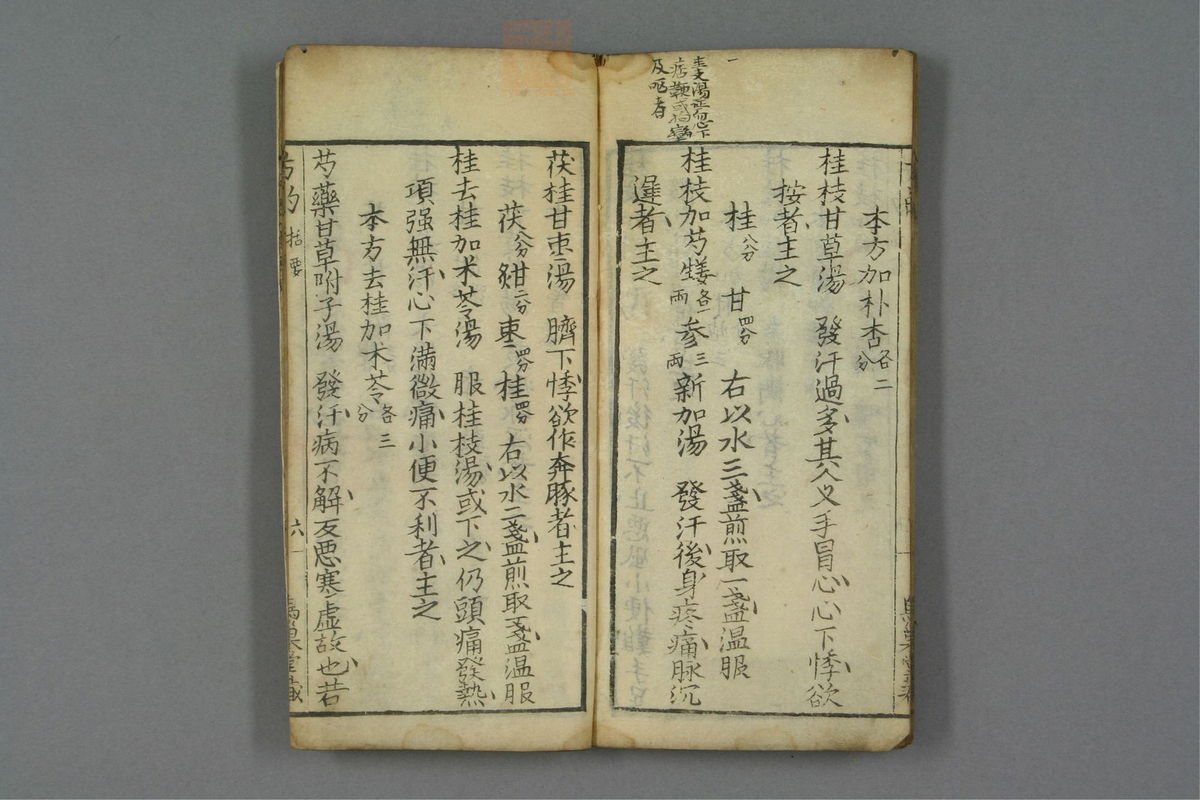 本方加朴杏各二分
桂枝甘草湯 發汗過多其人叉手冒心心下悸欲
按者主之
桂八分 甘四分 右以水三盞煎取一盞温服
桂枝加芍姜各一兩參三兩新加湯 發汗後身疼痛脉沉
遲者主之
茯桂甘枣湯 臍下悸欲作奔豚者主之
茯八分 甘二分 枣四分 桂四分 右以水二盞煎取一盞温服
桂去桂加术苓湯 服桂枝湯或下之仍頭痛發熱
項强無汗心下滿微痛小便不利者主之
本方去桂加术苓各三分
芍藥甘草附子湯 發汗病不解反惡寒虛故也若
六